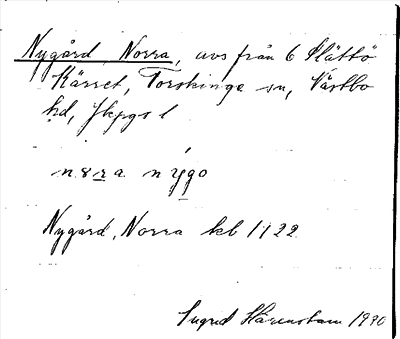 Nygård Norra, avs från 6 Slättö
Kärret, Torskinge sn, Västbo
hd, Jkpgs l
nɔra nygo
Nygård, Norra kb 1122
Ingrid Härenstam 1990